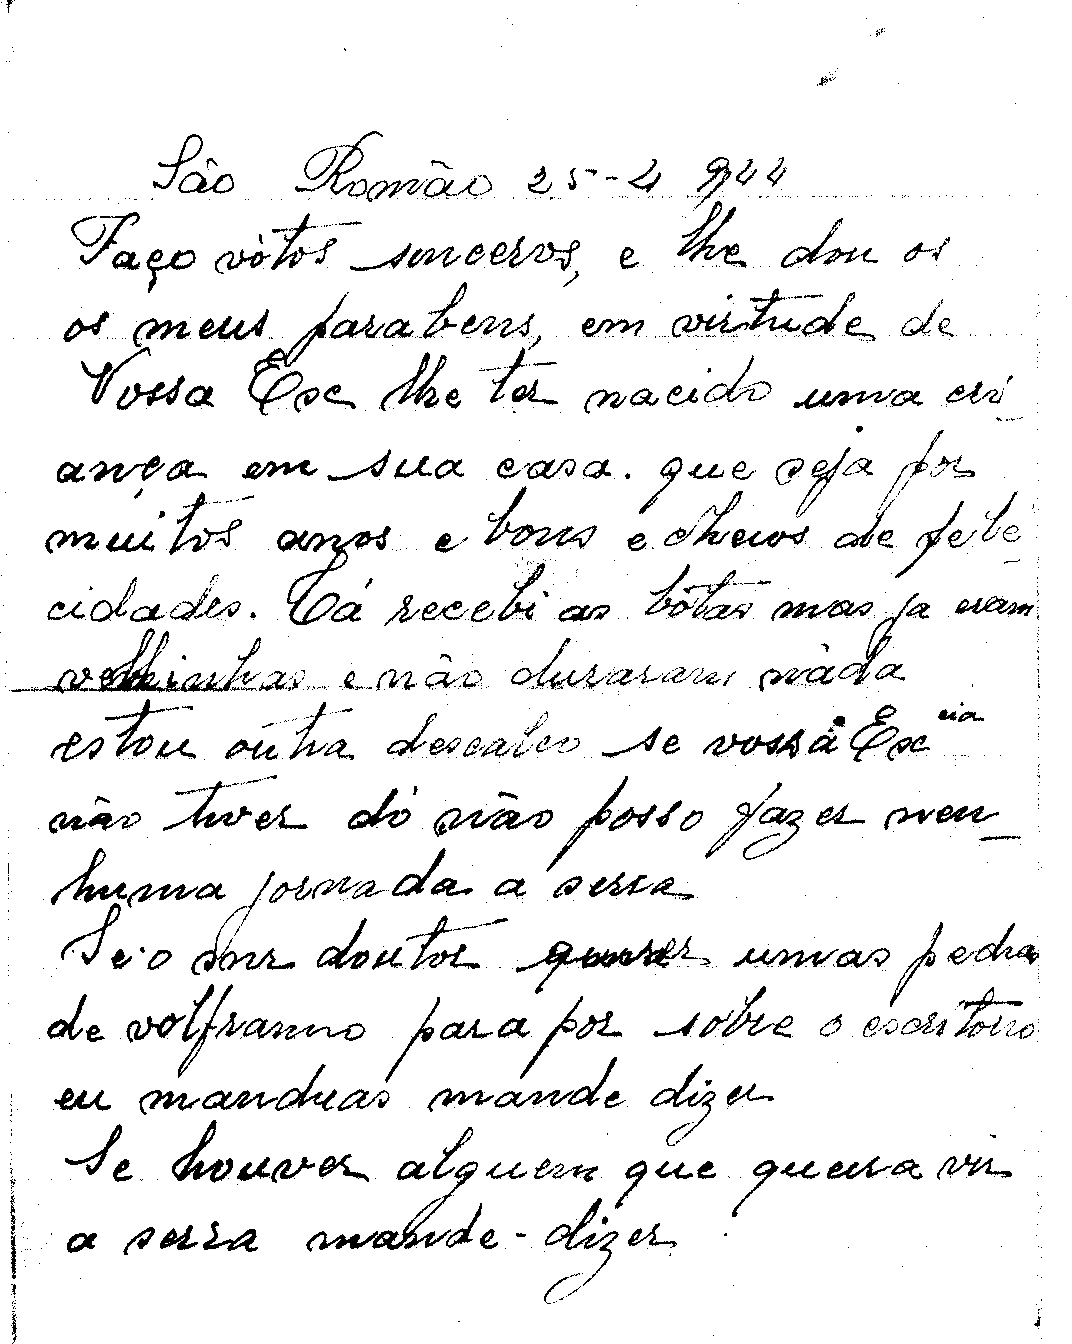 São Romão 25-4 944
Faço vótos sinceros, e lhe dou os
os meus parabens, em virtude de
Vossa Exc lhe ter nacido uma cri_
ança em sua casa. que seja por
muitos anos e bons e cheios de feli_
cidades. Cá recebi as bótas mas ja eram
velhinhas e não duraram náda
estou outra descalco se vossa Excia
não tiver dó não posso fazer nen_
huma jornada a serra
Se o snr doutor quiser umas pedras
de volframio para por sobre o escritorio
eu manduas mande dizer
Se houver alguem que queira vir
a serra mande-dizer